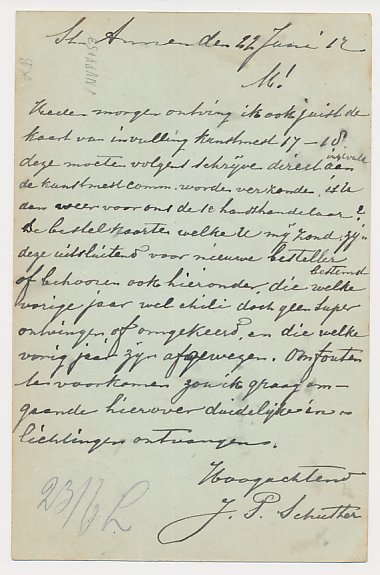 St. Anna den 22 Juni 17
M!
Heden morgen ontving ik ook juist de
kaart van invulling kunstmest 17-18
deze moeten volgens schrijve direct aan
ingevuld
de kunstmest comm. worden verzonden, is U
dan weer voor ons de handhandelaar?
De bestelkaarten welke U mij zond, zijn
deze uitsluitend voor nieuwe besteller
bestemd
of behooren ook hieronder, die welke
vorige jaar wel chili doch geen super
ontvingen of omgekeerd, en die welke
vorig jaar zijn afgewezen. Om fouten
te voorkomen zou ik graag om-
gaande hierover duidelijke in-
lichtingen ontvangen.
Hoogachtend
J. P. Schuther
23/6